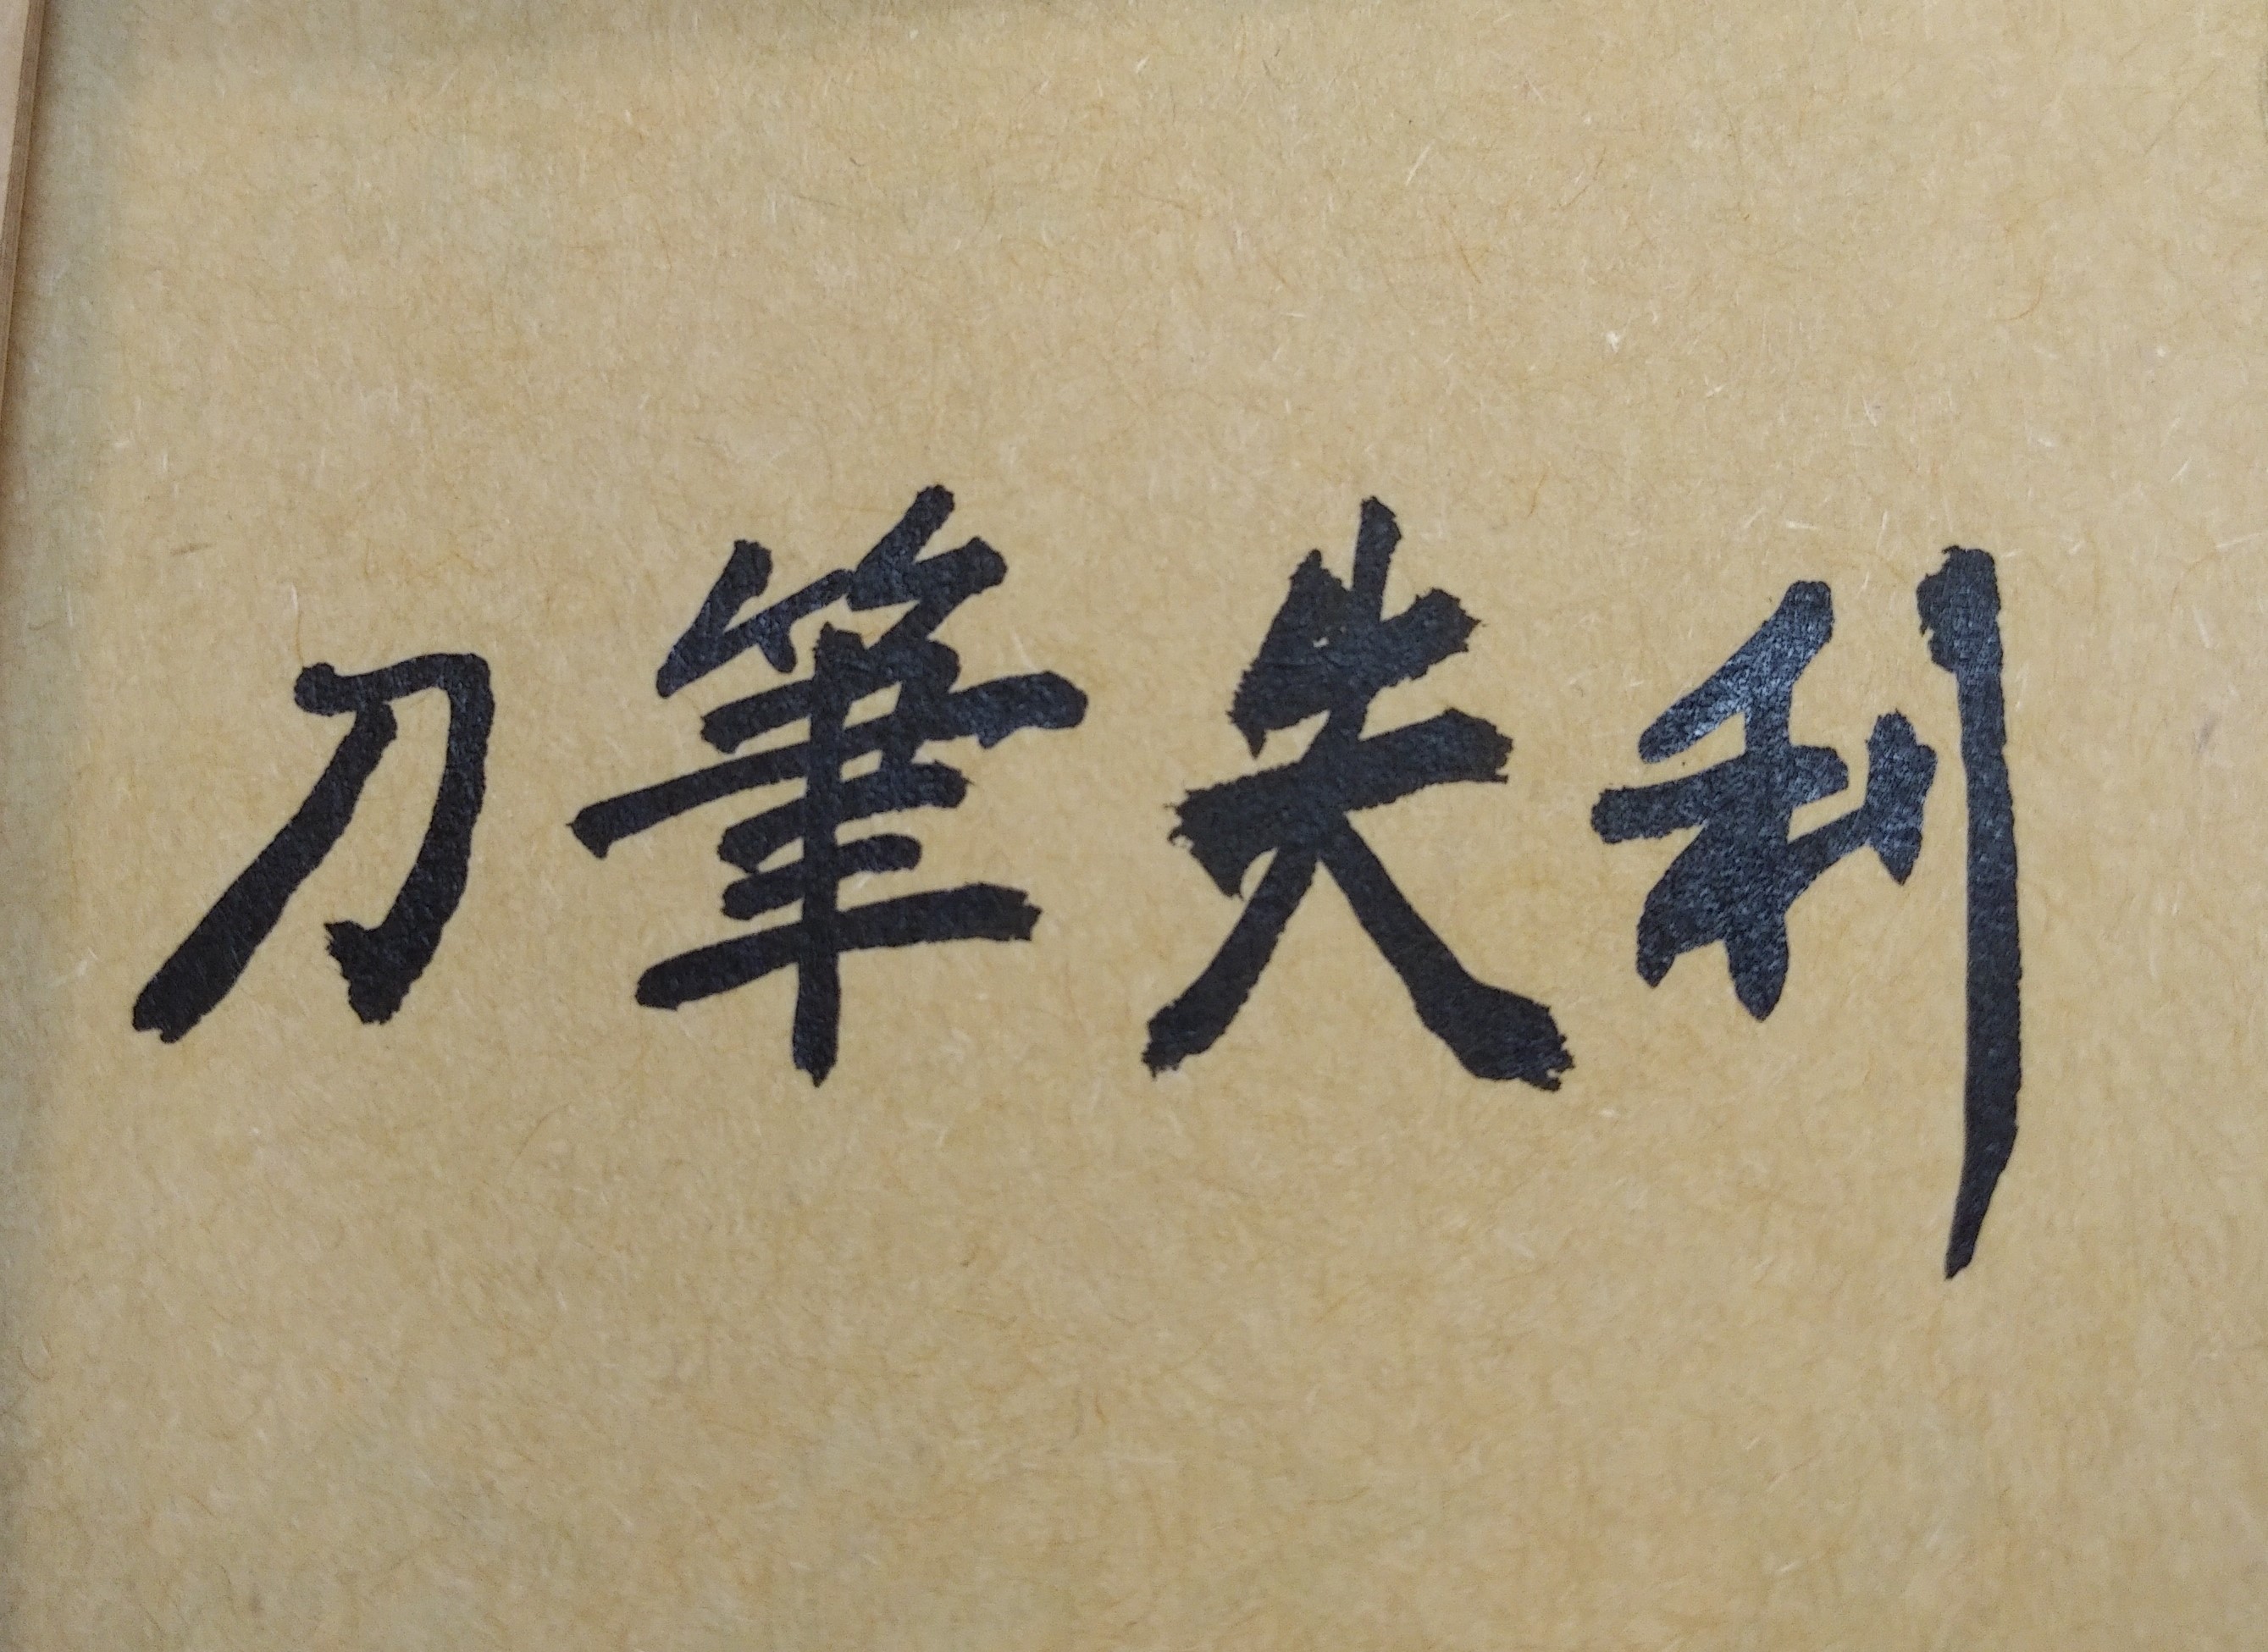 刀筆失利